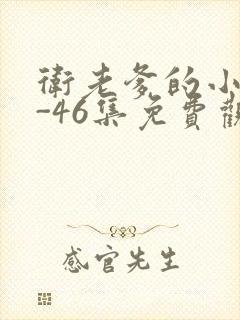 衛老爹的小
-46集免費觀
感官先生